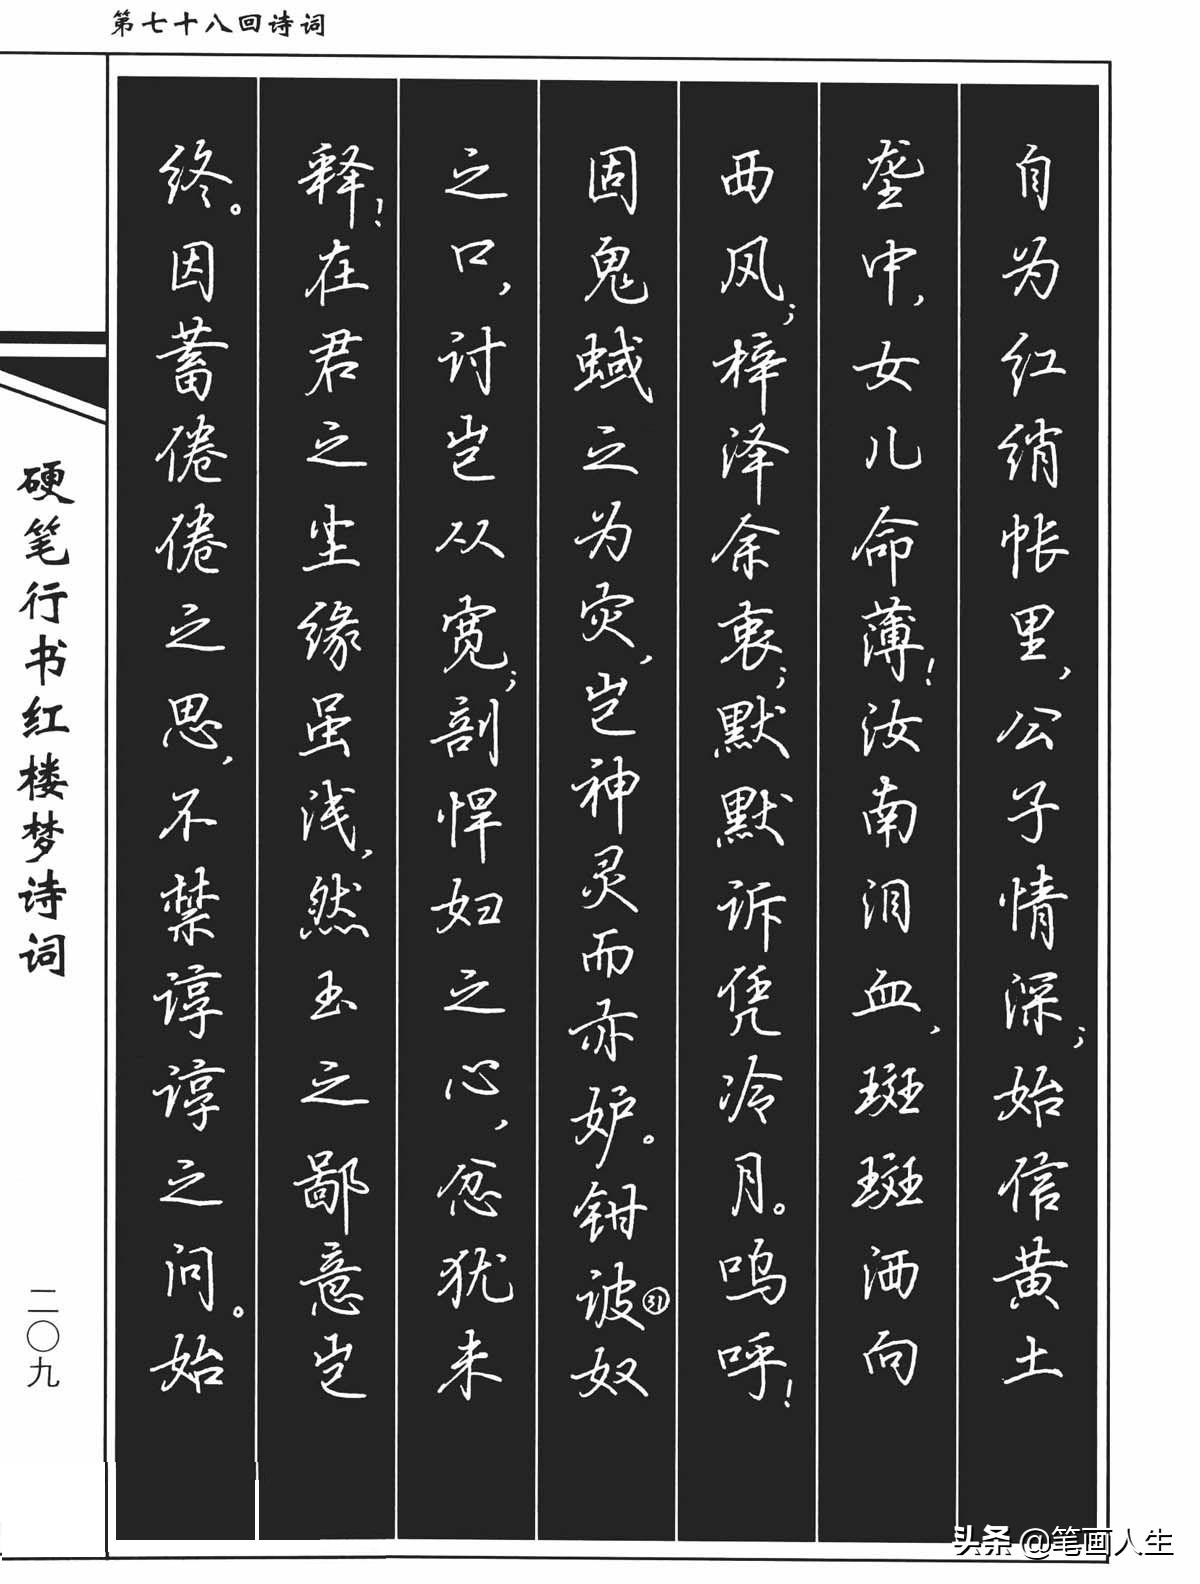 第七十八回诗词
自为红绡帐里，公子情深；始信黄土
垄中，女儿命薄！汝南泪血，斑斑洒向
西风；梓泽余衷；默默诉凭冷月。呜呼！
固鬼蜮之为灾，岂神灵而亦妒。钳诐㉛奴
之口，讨岂从宽；剖悍妇之心，忿犹未
释！在君之尘缘虽浅，然玉之鄙意岂
终。因蓄倦倦之思，不禁谆谆之问。始
硬笔行书红楼梦诗词
二〇九
头条 @笔画人生